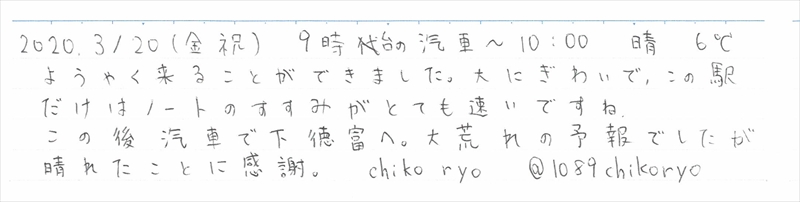 2020.3/20(金祝) 9時代台の汽車～10:00 晴 6℃
ようやく来ることができました。大にぎわいで、この駅
だけはノートのすすみがとても速いですね.
この後 汽車で下徳富へ。大荒れの予報でしたが
晴れたことに感謝。 chiko ryo @1089chikoryo